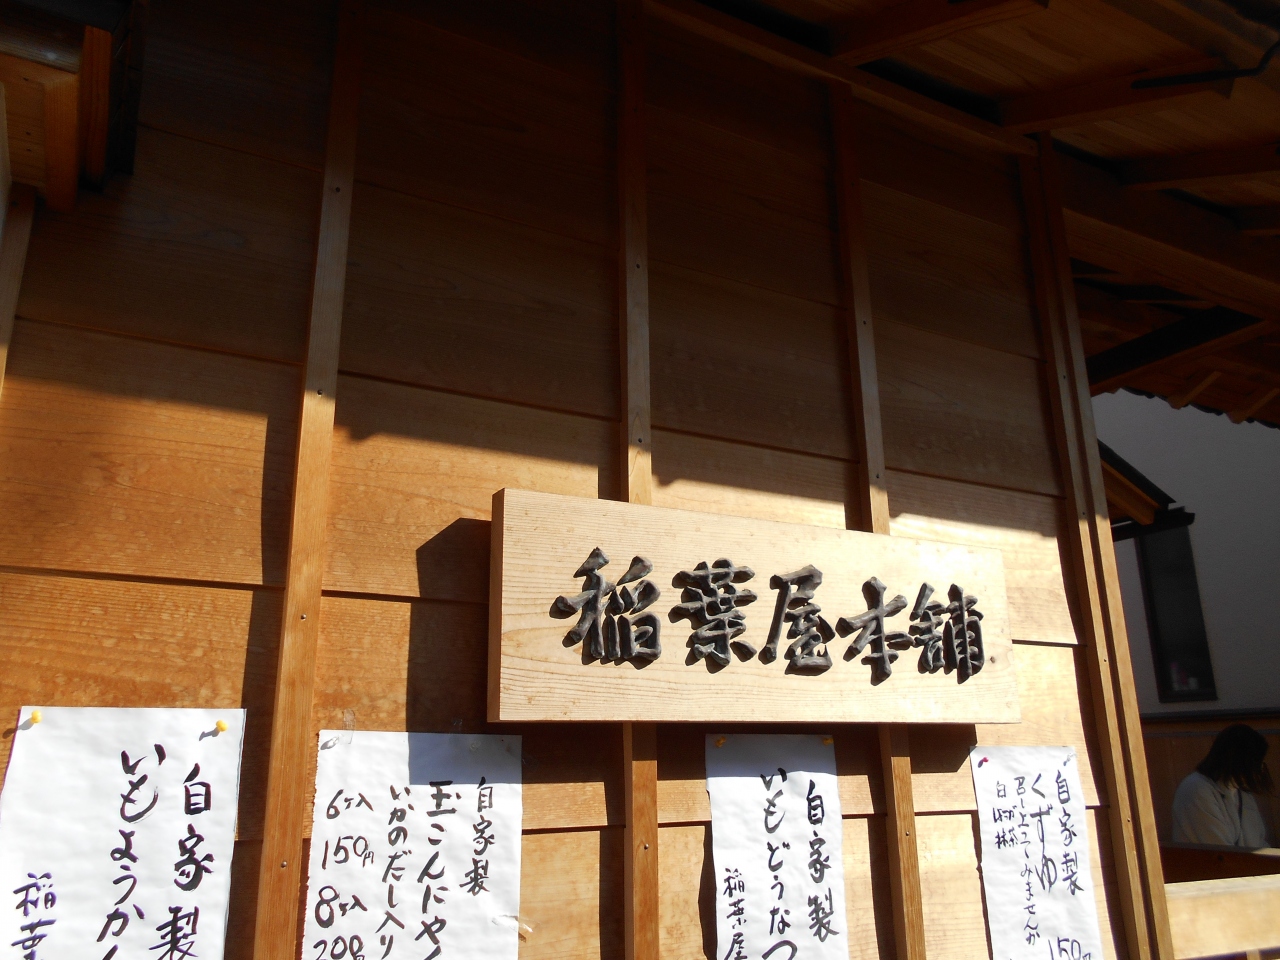 稲葉屋本舗
自家製
いもようかん
稲葉
自家製
玉こんにゃく
いかのだし入り
6ヶ入
150円
8ヶ入
200円
自家製
いもどうなつ
稲葉屋
自家製
くずゆ
召し上ってみませんか
150